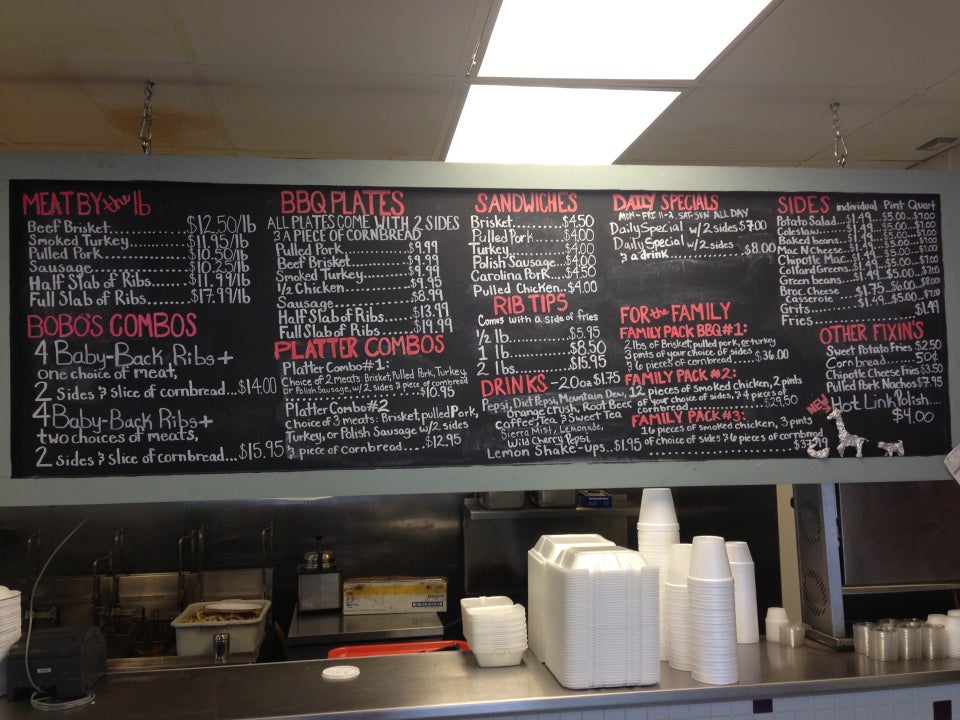 MEAT BY the lb
Beef Brisket..............$12.50/lb
Smoked Turkey..............$11.95/lb
Pulled Pork..............$10.50/lb
Sausage..............$10.25/lb
Half Slab of Ribs......$11.99/lb
Full Slab of Ribs......$17.99/lb
BOBO'S COMBOS
4 Baby-Back Ribs +
one choice of meat,
2 sides & slice of cornbread...$14.00
4 Baby-Back Ribs +
two choices of meats,
2 sides & slice of cornbread...$15.95
BBQ PLATES
ALL PLATES COME WITH 2 SIDES
& A PIECE OF CORNBREAD
Pulled Pork..............$9.99
Beef Brisket..............$9.99
Smoked Turkey..............$9.99
1/2 Chicken..............$9.95
Sausage..............$8.99
Half Slab of Ribs..............$13.99
Full Slab of Ribs..............$19.99
PLATTER COMBOS
Platter Combo #1:
Choice of 2 meats: Brisket, Pulled Pork, Turkey,
or Polish Sausage, w/ 2 sides & piece of cornbread
..............$10.95
Platter Combo #2
Choice of 3 meats: Brisket, pulled Pork,
Turkey, or Polish Sausage w/ 2 sides
& piece of cornbread....$12.95
SANDWICHES
Brisket..............$4.50
Pulled Pork..............$4.00
Turkey..............$4.00
Polish Sausage....$4.00
Carolina Pork....$4.50
Pulled Chicken....$4.00
RIB TIPS
Comes with a side of fries
1/2 lb..............$5.95
1 lb..............$8.50
2 lbs..............$15.95
DRINKS - 20oz $1.75
Pepsi, Diet Pepsi, Mountain Dew,
orange crush, Root Beer
Coffee, Tea
Sierra Mist, Lemonade,
Wild Cherry Pepsi
Lemon Shake-ups...$1.95
DAILY SPECIALS
MON-FRI 11-2 SAT-SUN ALL DAY
Daily Special w/ 2 sides $7.00
Daily Special w/ 2 sides
& a drink..............$8.00
FOR the FAMILY
FAMILY PACK BBQ #1:
2 lbs of Brisket, pulled pork, or turkey
3 pints of your choice of sides
& 6 pieces of cornbread....$36.00
FAMILY PACK #2:
12 pieces of smoked chicken, 2 pints
of your choice of sides, & 4 pieces of
cornbread..............$29.50
FAMILY PACK #3:
16 pieces of smoked chicken, 3 pints
of choice of sides & 6 pieces of cornbread
SIDES individual Pint Quart
Potato Salad...$1.49...$5.00...$7.00
Coleslaw...$1.49...$5.00...$7.00
Baked beans...$1.49...$5.00...$7.00
Mac N Cheese...$1.49...$5.00...$7.00
Chipotle Mac...$1.49...$5.00...$7.00
Collard Greens...$1.49...$5.00...$7.00
Green beans...$1.49...$5.00...$7.00
Broc. Cheese
Casserole...$1.75...$6.00...$8.00
Grits...$1.49...$5.00...$7.00
Fries..............$1.49
OTHER FIXIN'S
Sweet Potato Fries $2.50
Corn bread.....50¢
Chipotle Cheese Fries $3.50
Pulled Pork Nachos $7.95
NEW Hot Link Polish....
$4.00